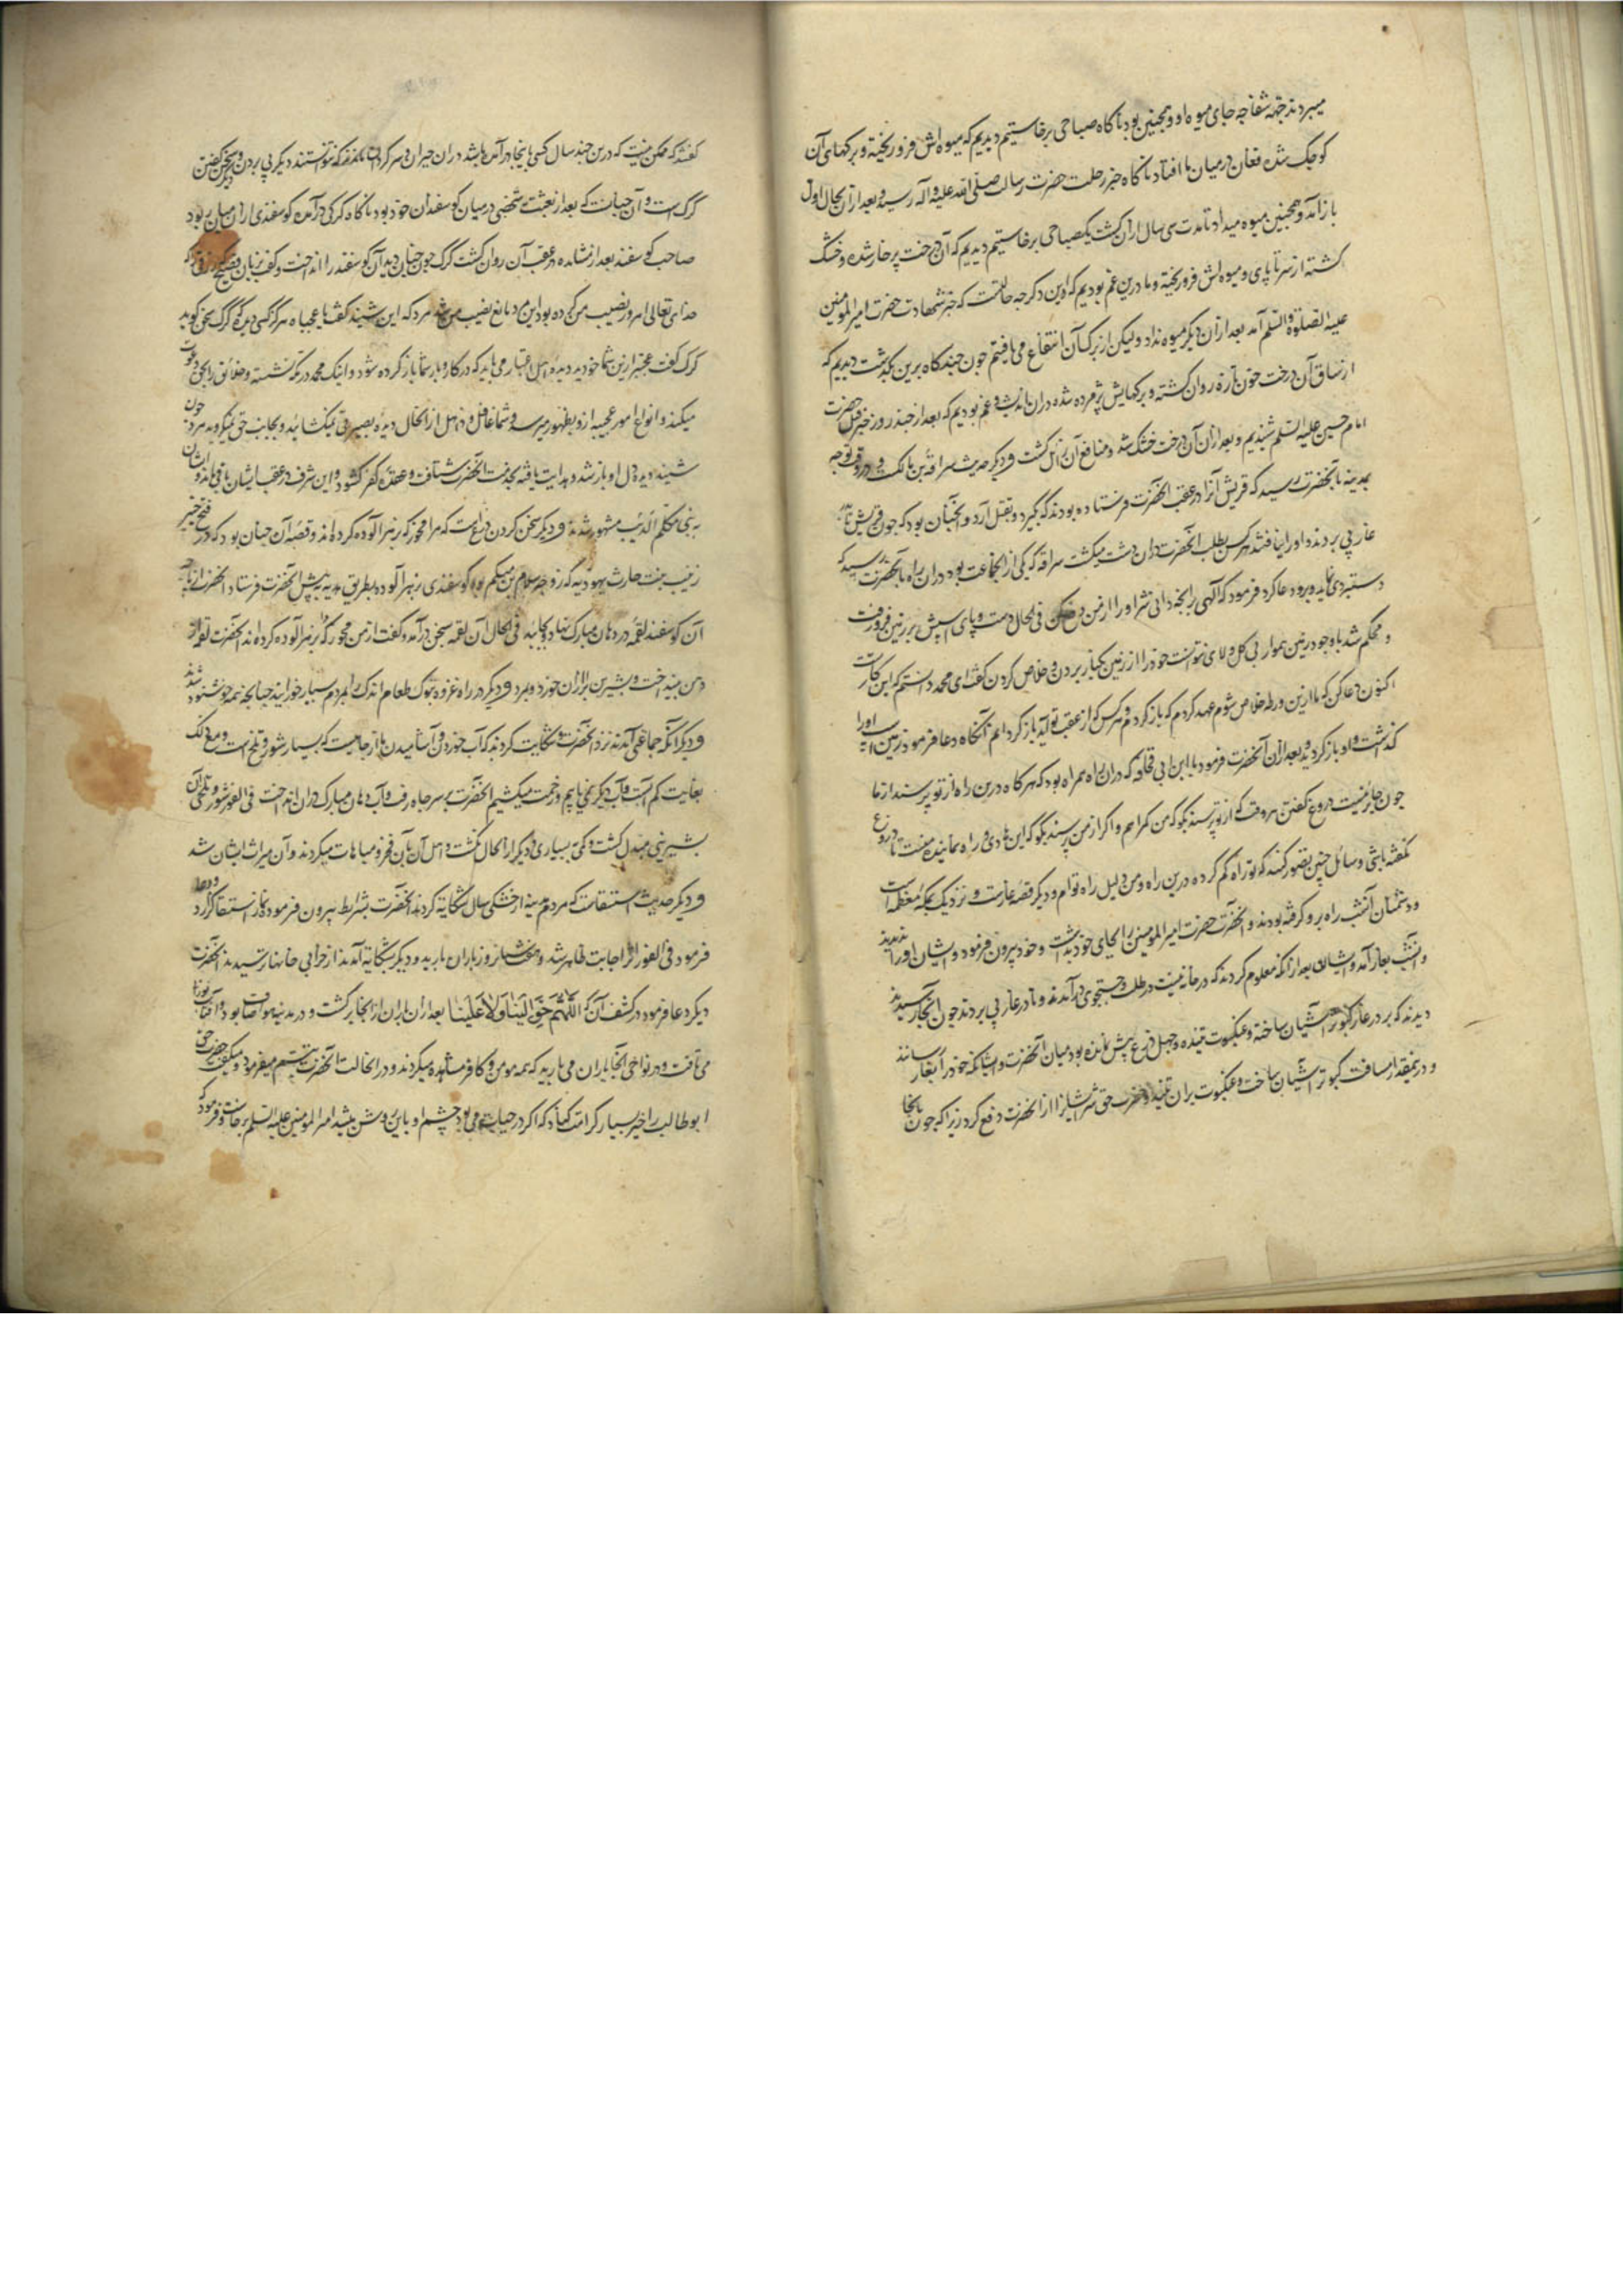 میبردند جهة شفا بجای میوه او و همچنین بود تا کاه صباحی برخاستیم دیدیم که میوه‌اش فرو ریخته و برکهای آن
کوچک شده فغان در میان ما افتاد ناکاه خبر رحلت حضرت رسالت صلی الله علیه و آله رسید و بعد از آن بحال اول
باز آمد و همچنین میوه میداد تا مدت سی سال از آن کشت یکصباحی برخاستیم دیدیم که آن درخت پر خار شده و خشک
کشته از سر تا پای و میوه‌اش فرو ریخته و ما درین غم بودیم که این دکر چه حالتست که خبر شهادت حضرت امیر المومنین
علیه الصلوة و السلم آمد بعد از آن دیکر میوه نداد ولیکن از برک آن انتفاع می یافتیم چون چندکاه برین بکذشت دیدیم که
از ساق آن درخت خون تازه روان کشته و برکهایش پژمرده شده در آن اندیشه و غم بودیم که بعد از چند روز خبر قتل حضرت
امام حسین علیه السلم شنیدیم و بعد از آن آن درخت خشک شد و منافع آن زائل کشت و دیکر حدیث سراقة بن مالکست در وقت توجه
بمدینه بآنحضرت رسید که قریش او را در عقب آنحضرت فرستاده بودند که بگیرد و بقتل آرد و آنچنان بود که چون قریش تا در
غار پی بردند و او را نیافتند هر کس بطلب آنحضرت در آن دشت میکشت سراقه که یکی از آنجماعت بود در آن راه بآنحضرت رسید که
دستبردی نماید بر و دعا کرد فرمود که الهی بآنچه دانی شر او را از من دفع کن فی الحال دست و پای اسپش بر زمین فرو رفت
و محکم شد با وجود زمین هموار بی کل و لای نتوانست خود را از زمین بکنار بردن و خلاص کردن کفت ای محمد دانستم که این کار تست
اکنون دعا کن که ما ازین ورطه خلاص شوم عهد کردم که باز کردم و هر کس که از عقب تو آید باز کردانم آنکاه دعا فرمود زمین او را
کذاشت و او باز کردید و بعد از آن آنحضرت فرمود با ابن ابی قحافه که در آن راه همراه بود که هر کاه درین راه از تو پرسند از ما
چون جایز نیست دروغ کفتن هر وقت که از تو پرسند بکو که من کمراهم و اکر از من پرسند بکو که این هادی و راه نماینده منست تا دروغ
نکفته باشی و سائل چنین تصور کند که تو راه کم کرده درین راه و من دلیل راه توام و دیکر قصه غارست و نزدیک بمکه معظمه است
و دشمنان آنشب راه برو کرفته بودند و آنحضرت حضرت امیر المومنین را بجای خود بداشت و خود بیرون فرمود و ایشان او را ندیدند
و آنشب بغار آمد و ایشان بعد از آنکه معلوم کردند که در خانه نیست در طلب و جستجوی در آمدند و تا در غار پی بردند چون آنجا رسیدند
دیدند که بر در غار کبوتر آشیان ساخته و عنکبوت تنیده و چهل ذرع پیش نمانده بود میان آنحضرت و ایشان که خود را بغار رسانند
و درینقدر مسافت کبوتر آشیان ساخت و عنکبوت بر آن تنید و حضرت حق شر ایشانرا از آنحضرت دفع کرد زیرا که چون بآنجا
کفتند که ممکن نیست که درین چند سال کسی بآنجا در آمده باشد در آن حیران و سرکردان بماندند که نتوانستند دیکر پی بردن و دیکر سخن کفتن
کرک است و آن چنانست که بعد از بعثت شخصی در میان کوسفندان خود بود ناکاه کرکی در آمد و کوسفندی از آن میان بربود
صاحب کوسفند بعد از مشاهده در عقب آن روان کشت کرک چون چنان دید آن کوسفند را انداخت و کفت بزبان فصیح
خدای تعالی امروز نصیب من کرده بود این و مانع نصیب من شد مرد که این شنید کفت یا عجباه هرکز کسی دیده که کرک سخن کوید
کرک کفت عجبتر ازین شما خود دیدید دیده اهل اعتبار می باید که در کار و بار شما باز کرده شود و اینک محمد در مکه نشسته و خلائق را بحق دعوت
میکند و انواع امور عجیبه از و بظهور میرسد و شما غافل و ذاهل از آنحال دیده بصیرتی نمیکشائید و بجانب حق نمیکروید مرد چون
شنید دیده دل او باز شد و هدایت یافته بخدمت آنحضرت شتافت و عقده کفر کشود و این شرف در عقب ایشان باقی ماند و ایشان
به بنی مکلم الذیب مشهور شدند و دیکر سخن کردن ذراع است که مرا مخور که بزهر آلوده کرده‌اند و قصه آن چنان بود که در فتح خیبر
زینب بنت حارث یهودیه که زوجه سلام بن مشکم بود کوسفندی بزهر آلوده بطریق هدیه پیش آنحضرت فرستاد آنحضرت
آن کوسفند لقمه در دهان مبارک نهاد بخائید فی الحال آن لقمه بسخن در آمد و کفت از من مخور که بزهر آلوده کرده‌اند آنحضرت لقمه از
دهن بینداخت و بشیر بن براء از آن خورد و بمرد و دیکر در راه غزوه تبوک طعام اندک را بمردم بسیار خورانید چنانچه همه خوشنود شدند
و دیکر آنکه جماعتی آمدند نزد آنحضرت و شکایت کردند که آب خوردن و آشامیدن ما از چاهیست که بسیار شور و تلخ است و مع ذلک
بغایت کم است و آب دیکر نمی یابیم و زحمت میکشیم آنحضرت بر سر چاه رفت و آب دهان مبارک در آن انداخت فی الفور شوری و تلخی آن
بشیرینی مبدل کشت و کمی ببسیاری و دیکر از آنحال نکشت و اهل آن بآن فخر و مباهات میکردند و آن میراث ایشان شد
و دیکر حدیث استسقاست که مردم مدینه از خشکی سال شکایة کردند آنحضرت بشرایط بیرون فرمود و نماز استسقا کزارد و دعا
فرمود فی الفور اثر اجابت ظاهر شد و هفت شبانروز باران بارید و دیکر بشکایة آمدند از خرابی خانها و ترسیدند آنحضرت
دیکر دعا فرمود در کشف آن که اللَّهُمَّ حَوَالَیْنَا وَلَا عَلَیْنَا بعد از آن باران از آنجا برکشت و در مدینه هوا صاف بود و آفتاب
می تافت و در نواحی آنجا باران می بارید که همه مومن و کافر مشاهده میکردند و در آنحالت آنحضرت تبسم میفرمود و میکفت حضرت حق
ابو طالب را خیر بسیار کرامت کناد که اکر در حیات می بود چشم او باین روشن میشد امیر المومنین علیه السلم برخاست و فرمود که